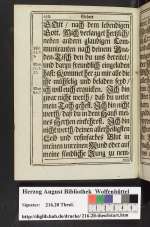 GOtt / nach dem lebendigen
GOtt. Mich verlanget hertzlich /
neben andern gläubigen Com-
municanten nach deinem Gna-
den-Tisch den du uns bereitet /
und darzu freundlich eingeladen
hast: Kommet her zu mir alle die
ihr mühselig und beladen seyd /
ich will euch erquicken. Ich bin
zwar nicht werth / daß du unter
mein Dach gehest. Ich bin nicht
werth / daß du in dem Hauß mei-
nes Hertzen einkehrest. Ich bin
nicht werth / deinen
Leib und rosinfarbes Blut in
meinen unreinen Mund oder auf
meine sündliche Zung zu nem-
Herzog August Bibliothek Wolfenbüttel
Signatur: 216.20 Theol.
http://diglib.hab.de/drucke/216-20-theol/start.htm